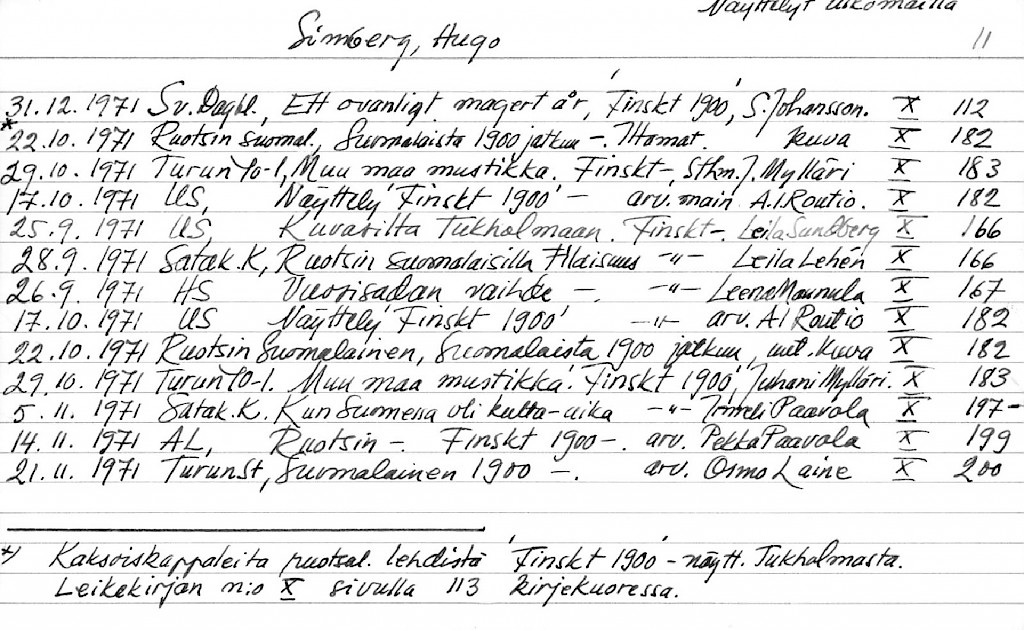 Näyttelyt ulkomailla
Simberg, Hugo 11
31.12.1971 Sv. Dagbl., Ett ovanligt magert år, 'Finskt 1900', S. Johansson. X 112
*
22.10.1971 Ruotsin suomal., Suomalaista 1900 jatkuu -. kuva X 182
29.10.1971 Turun Yo-l, Muu maa mustikka. Finskt-, Sthm. J. Mylläri X 183
17.10.1971 US, Näyttely 'Finskt 1900' - arv. main A.I. Routio. X 182
25.9.1971 US, Kuvasilta Tukholmaan. Finskt-. Leila Sundberg X 166
28.9.1971 Satak. K, Ruotsin suomalaisilla tilaisuus -"- Leila Lehén X 166
26.9.1971 HS Vuosisadan vaihde -. -"- Leena Maunula X 167
17.10.1971 US Näyttely 'Finskt 1900' -"- arv. AI Routio X 182
22.10.1971 Ruotsin Suomalainen, Suomalaista 1900 jatkuu, kuva X 182
29.10.1971 Turun YO-l. Muu maa mustikka. 'Finskt 1900', Juhani Mylläri. X 183
5.11.1971 Satak. K, Kun Suomena oli kulta-aika -"- Paavola X 197-
14.11.1971 AL, Ruotsin - Finskt 1900-. arv. Pekka Paavola X 199
21.11.1971 TurunSt, Suomalainen 1900 -. arv. Osmo Laine X 200
*) Kaksoiskappaleita ruotsal. lehdistä 'Finskt 1900' - näytt. Tukholmasta.
Leikekirjan n:o X sivulla 113 kirjekuoressa.